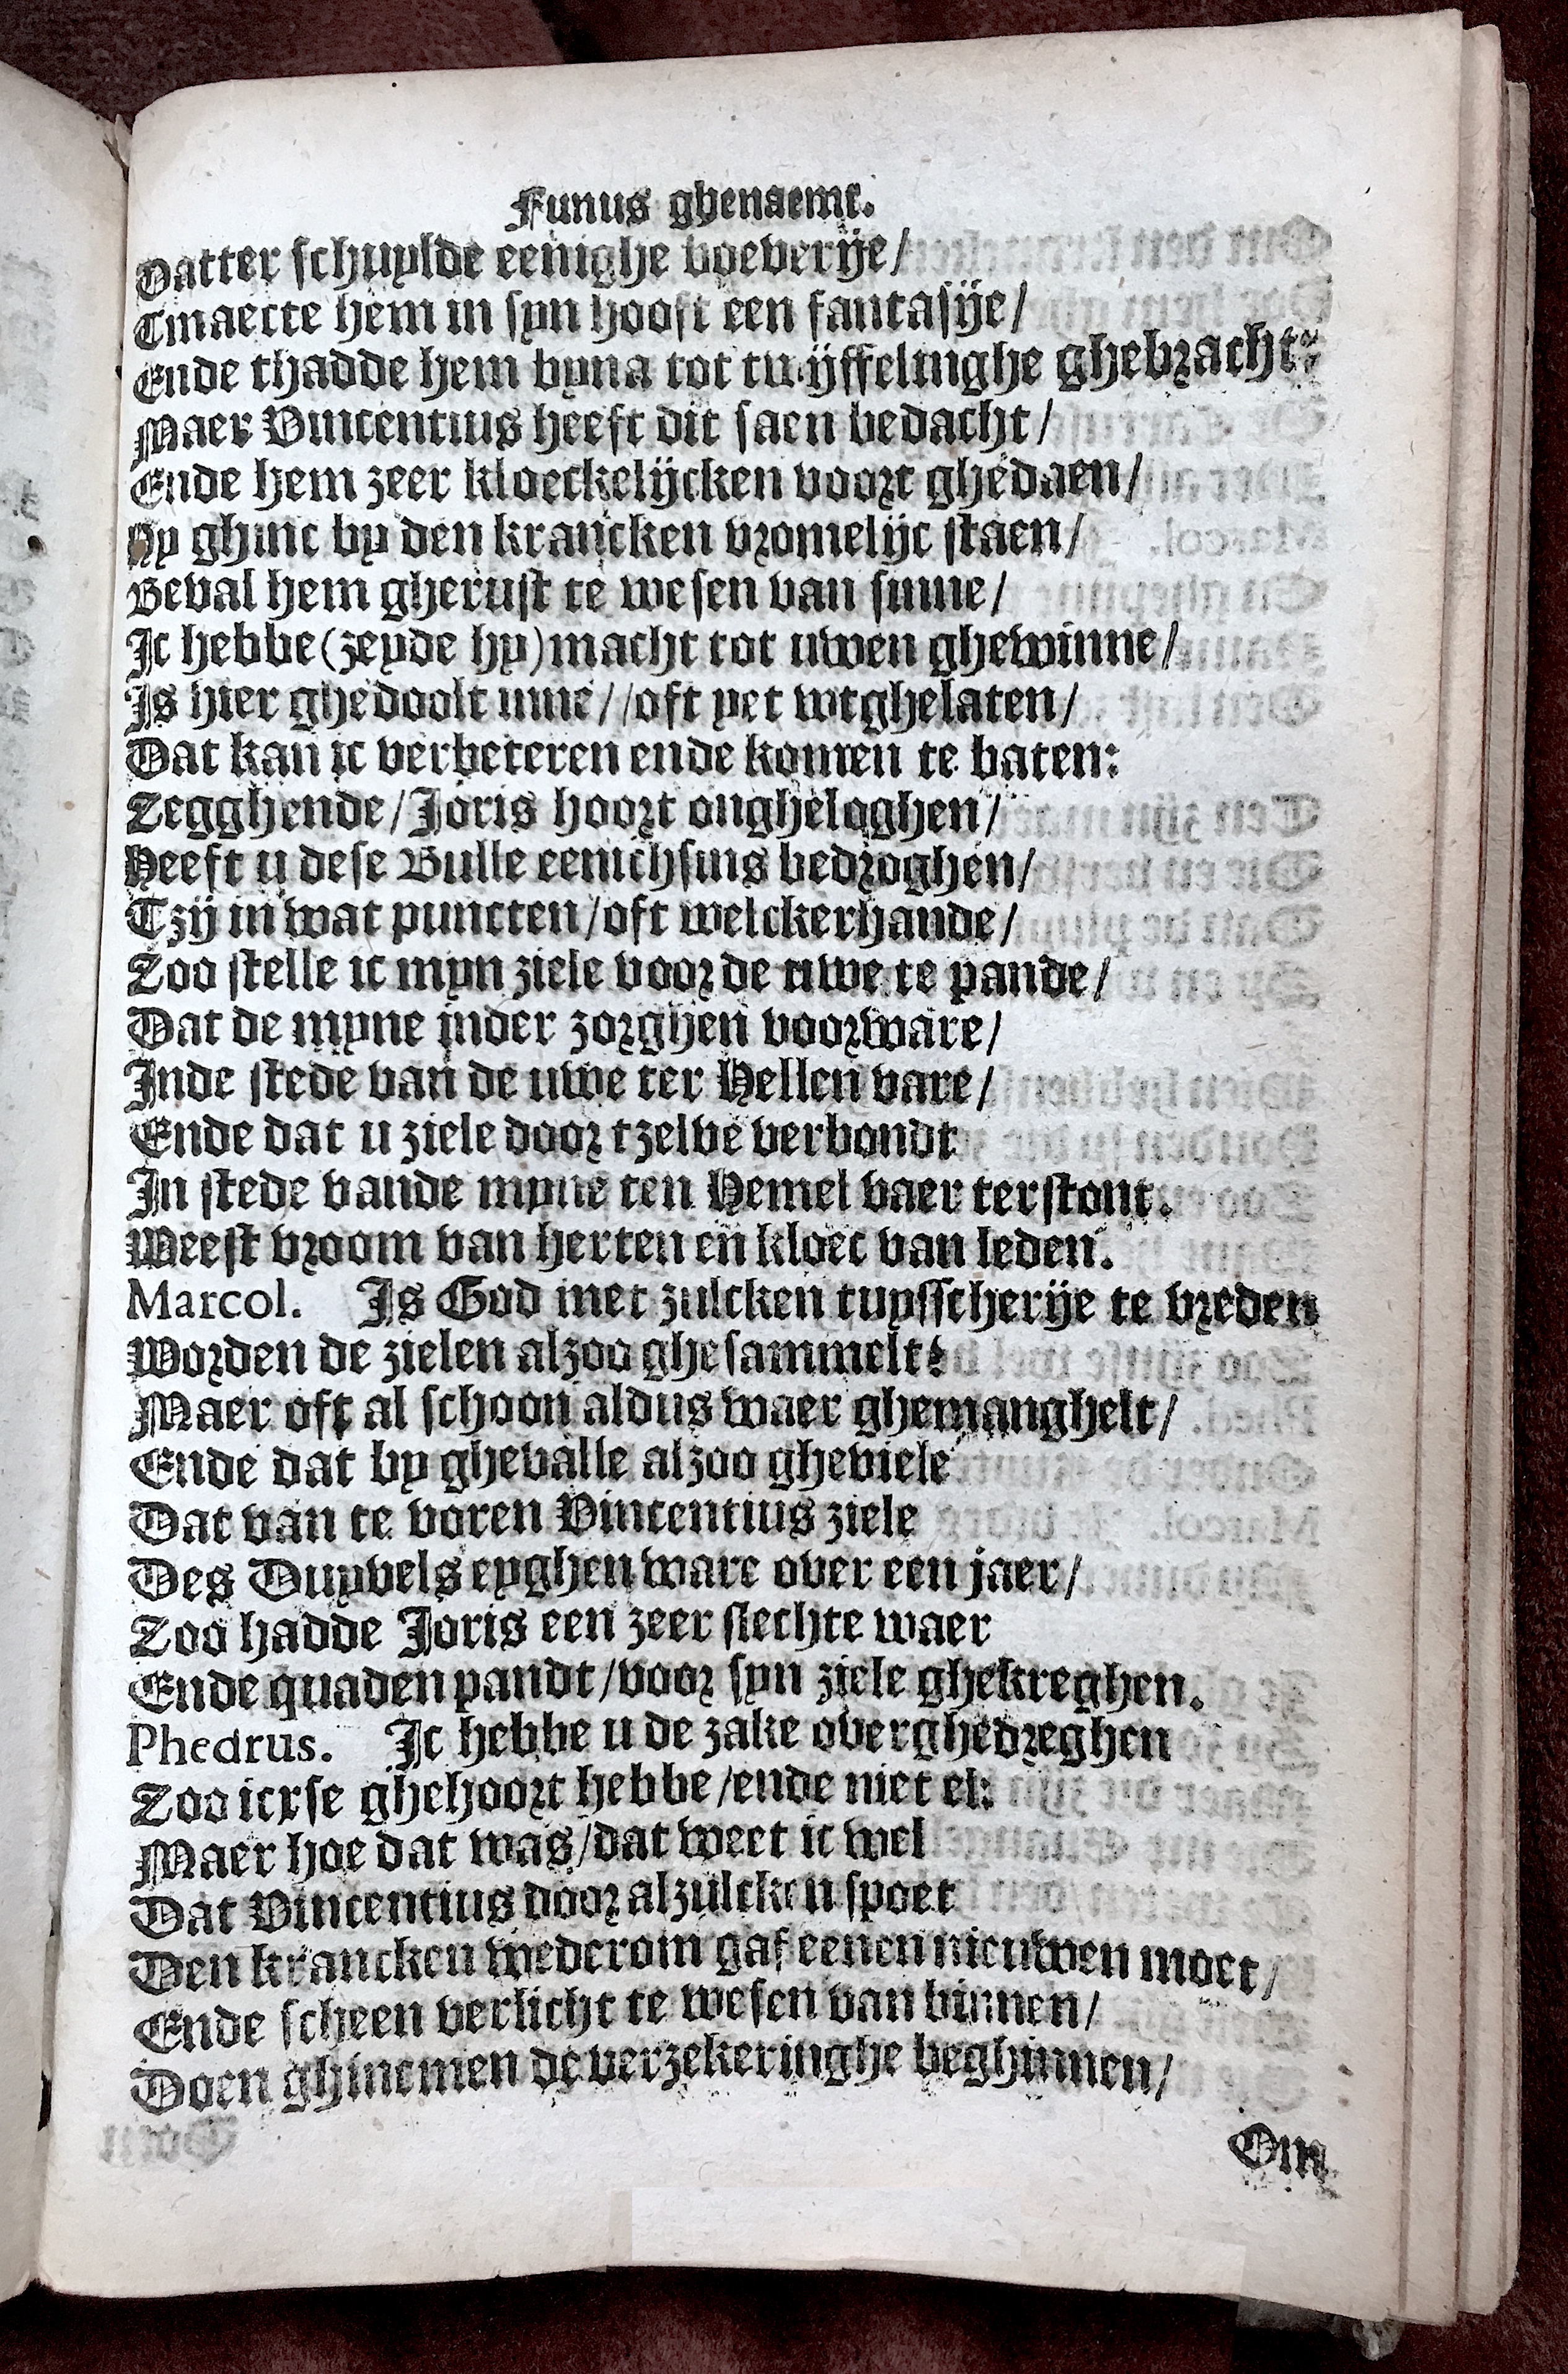 Funus ghenaemt.
Datter schuylde eenighe boeverije/
Tmaecte hem in syn hooft een fantasije/
Ende thadde hem byna tot twijffelinghe ghebracht:
Maer Vincentius heeft dit saen bedacht/
Ende hem zeer kloeckelijcken voort ghedaen/
Hy ghinc by den krancken vromelijc staen/
Beval hem gherust te wesen van sinne/
Ic hebbe (zeyde hy) macht tot uwen ghewinne/
Is hier ghedoolt inne//oft yet wtghelaten/
Dat kan ic verbeteren ende komen te baten:
Zegghende/Joris hoort ongheloghen/
Heeft u dese Bulle eenichsins bedroghen/
Tzij in wat puncten/oft welckerhande/
Zoo stelle ic myn ziele voor de uwe te pande/
Dat de myne inder zorghen voorware/
Inde stede van de uwe ter Hellen vare/
Ende dat u ziele door tzelve verbondt
In stede vande myne ten Hemel vaer terstont.
Weest vroom van herten eñ kloec van leden.
Marcol. Is God met zulcken tuysscherije te vreden
Worden de zielen alzoo ghesammelt?
Maer oft al schoon aldus waer ghemanghelt/
Ende dat by ghevalle alzoo gheviele
Dat van te voren Vincentius ziele
Des Duyvels eyghen ware over een jaer/
Zoo hadde Joris een zeer slechte waer
Ende quaden pandt/voor syn ziele ghekreghen.
Phedrus. Ic hebbe u de zake overghedreghen
Zoo icxse ghehoort hebbe/ende niet el:
Maer hoe dat was/dat weet ic wel
Dat Vincentius door alzulcken spoet
Den krancken wederom gaf eenen nieuwen moet/
Ende scheen verlicht te wesen van binnen/
Doen ghincmen de verzekeringhe beghinnen/
Om